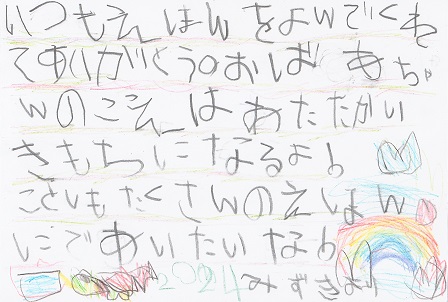 いつもえほんをよんでくれ
てありがとう。おばあちゃ
んのこえはあたたかい
きもちになるよ。
ことしもたくさんのえほん
にであいたいな。
2024みずきより